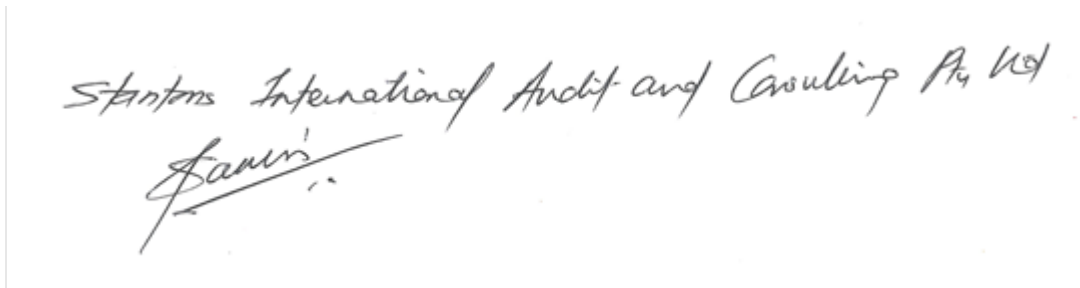 Stantons International Audit and Consulting Pty Ltd